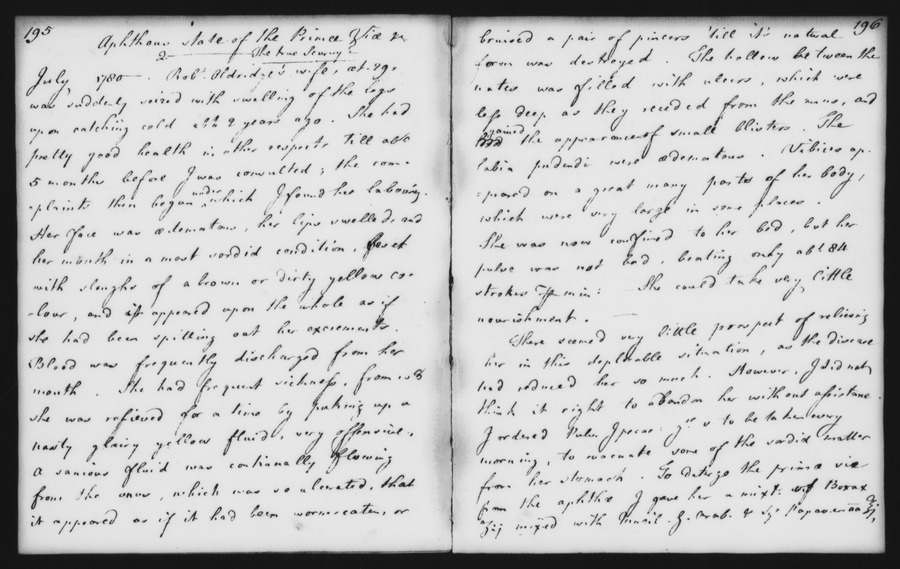 195
Aphthous state of the Primæ Viæ &c
The true Scurvy
July 1780. Robt. Aldridge's wife, æt. 29,
was suddenly seized with swelling of the legs
upon catching cold abt. 2 years ago. She had
pretty good health in other respects till abt.
5 months before I was consulted; the com-
-plaints then began under which I found her labouring.
Her face was œdematous, her lips swelled, and
her mouth in a most sordid condition, beset
with sloughs of a brown or dirty yellow co-
-lour, and it appeared upon the whole as if
she had been spitting out her excrements.
Blood was frequently discharged from her
mouth. She had frequent sickness, from wch
she was relieved for a time by puking up a
nasty glairy yellow fluid, very offensive.
A sanious fluid was continually flowing
from the anus, which was so ulcerated, that
it appeared as if it had been worm-eaten, or
196
bruised a pair of pincers 'till its natural
form was destroyed. The hollow between the
nates was filled with ulcers, which were
less deep as they receded from the anus, and
gained the appearance of small blisters. The
labia pudendi were œdematous. Vibices ap-
-peared on a great many parts of her body,
which were very large in some places.
She was now confined to her bed, but her
pulse was not bad, beating only abt. 84
strokes p min: She could take very little
nourishment.
There seemed very little prospect of relieving
her in this deplorable situation, as the disease
had reduced her so much. However, I did not
think it right to abandon her without assistance.
I ordered Pulv. Ipecac: gr. v to be taken every
morning, to evacuate some of the sordid matter
from her stomach. To deterge the primæ viæ
from the aphthæ I gave her a mixt: of Borax
ʒij mixed with Mucil. G. Arab. & Syr. Papaver. āā ℥j,